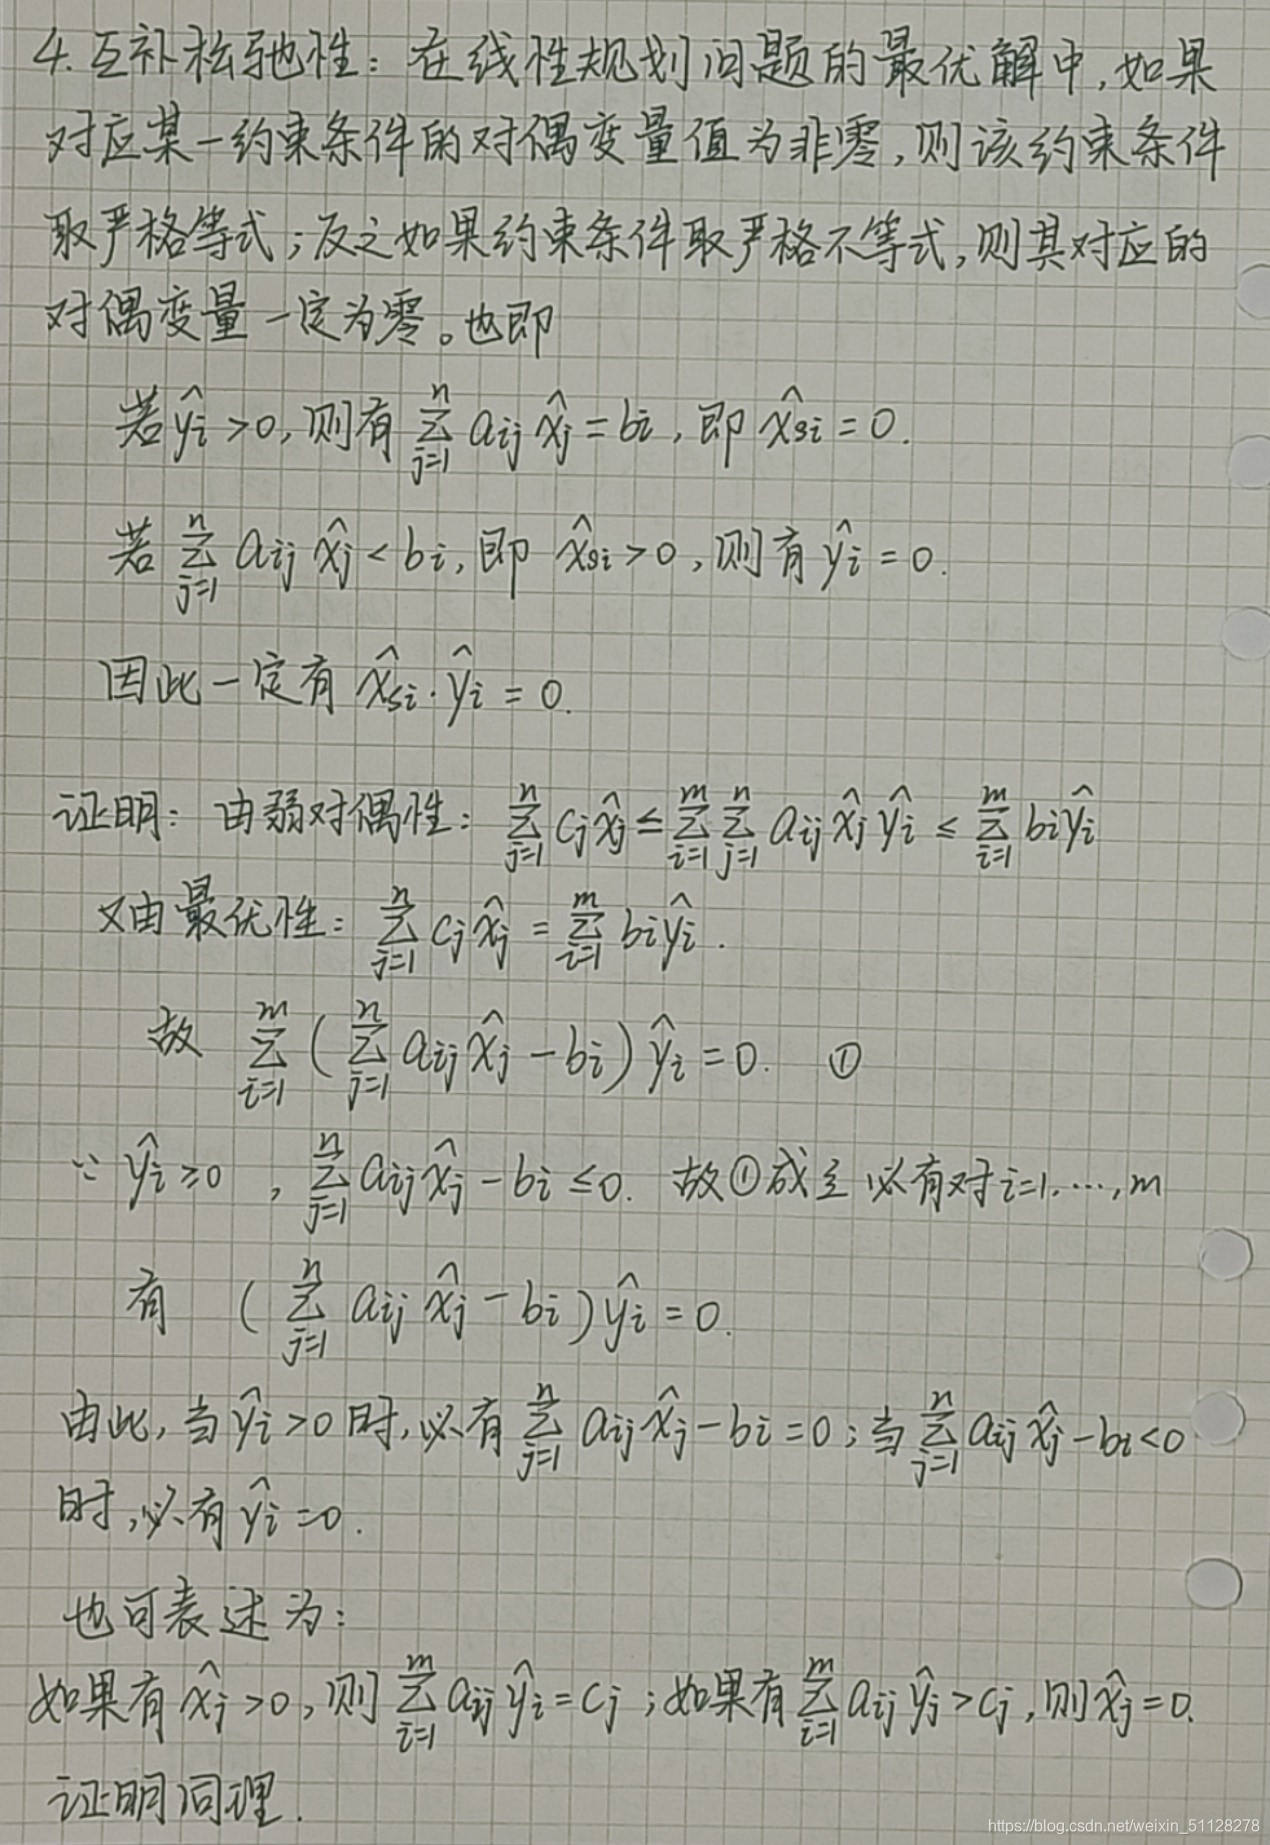 4. 互补松驰性：在线性规划问题的最优解中，如果
对应某一约束条件的对偶变量值为非零，则该约束条件
取严格等式；反之如果约束条件取严格不等式，则其对应的
对偶变量一定为零。也即
若 ŷi > 0，则有 ∑_{j=1}^{n} aij x̂j = bi，即 x̂si = 0.
若 ∑_{j=1}^{n} aij x̂j < bi，即 x̂si > 0，则有 ŷi = 0.
因此一定有 x̂si · ŷi = 0.
证明：由弱对偶性：∑_{j=1}^{n} cj x̂j ≤ ∑_{i=1}^{m} ∑_{j=1}^{n} aij x̂j ŷi ≤ ∑_{i=1}^{m} bi ŷi
又由最优性：∑_{j=1}^{n} cj x̂j = ∑_{i=1}^{m} bi ŷi .
故 ∑_{i=1}^{m} ( ∑_{j=1}^{n} aij x̂j − bi ) ŷi = 0. ①
∵ ŷi ≥ 0 , ∑_{j=1}^{n} aij x̂j − bi ≤ 0. 故①成立必有对 i=1, …, m
有 ( ∑_{j=1}^{n} aij x̂j − bi ) ŷi = 0.
由此, 当 ŷi > 0 时, 必有 ∑_{j=1}^{n} aij x̂j − bi = 0；当 ∑_{j=1}^{n} aij x̂j − bi < 0
时, 必有 ŷi = 0.
也可表述为：
如果有 x̂j > 0，则 ∑_{i=1}^{m} aij ŷi = cj；如果有 ∑_{i=1}^{m} aij ŷj > cj，则 x̂j = 0.
证明同理.
https://blog.csdn.net/weixin_51128278